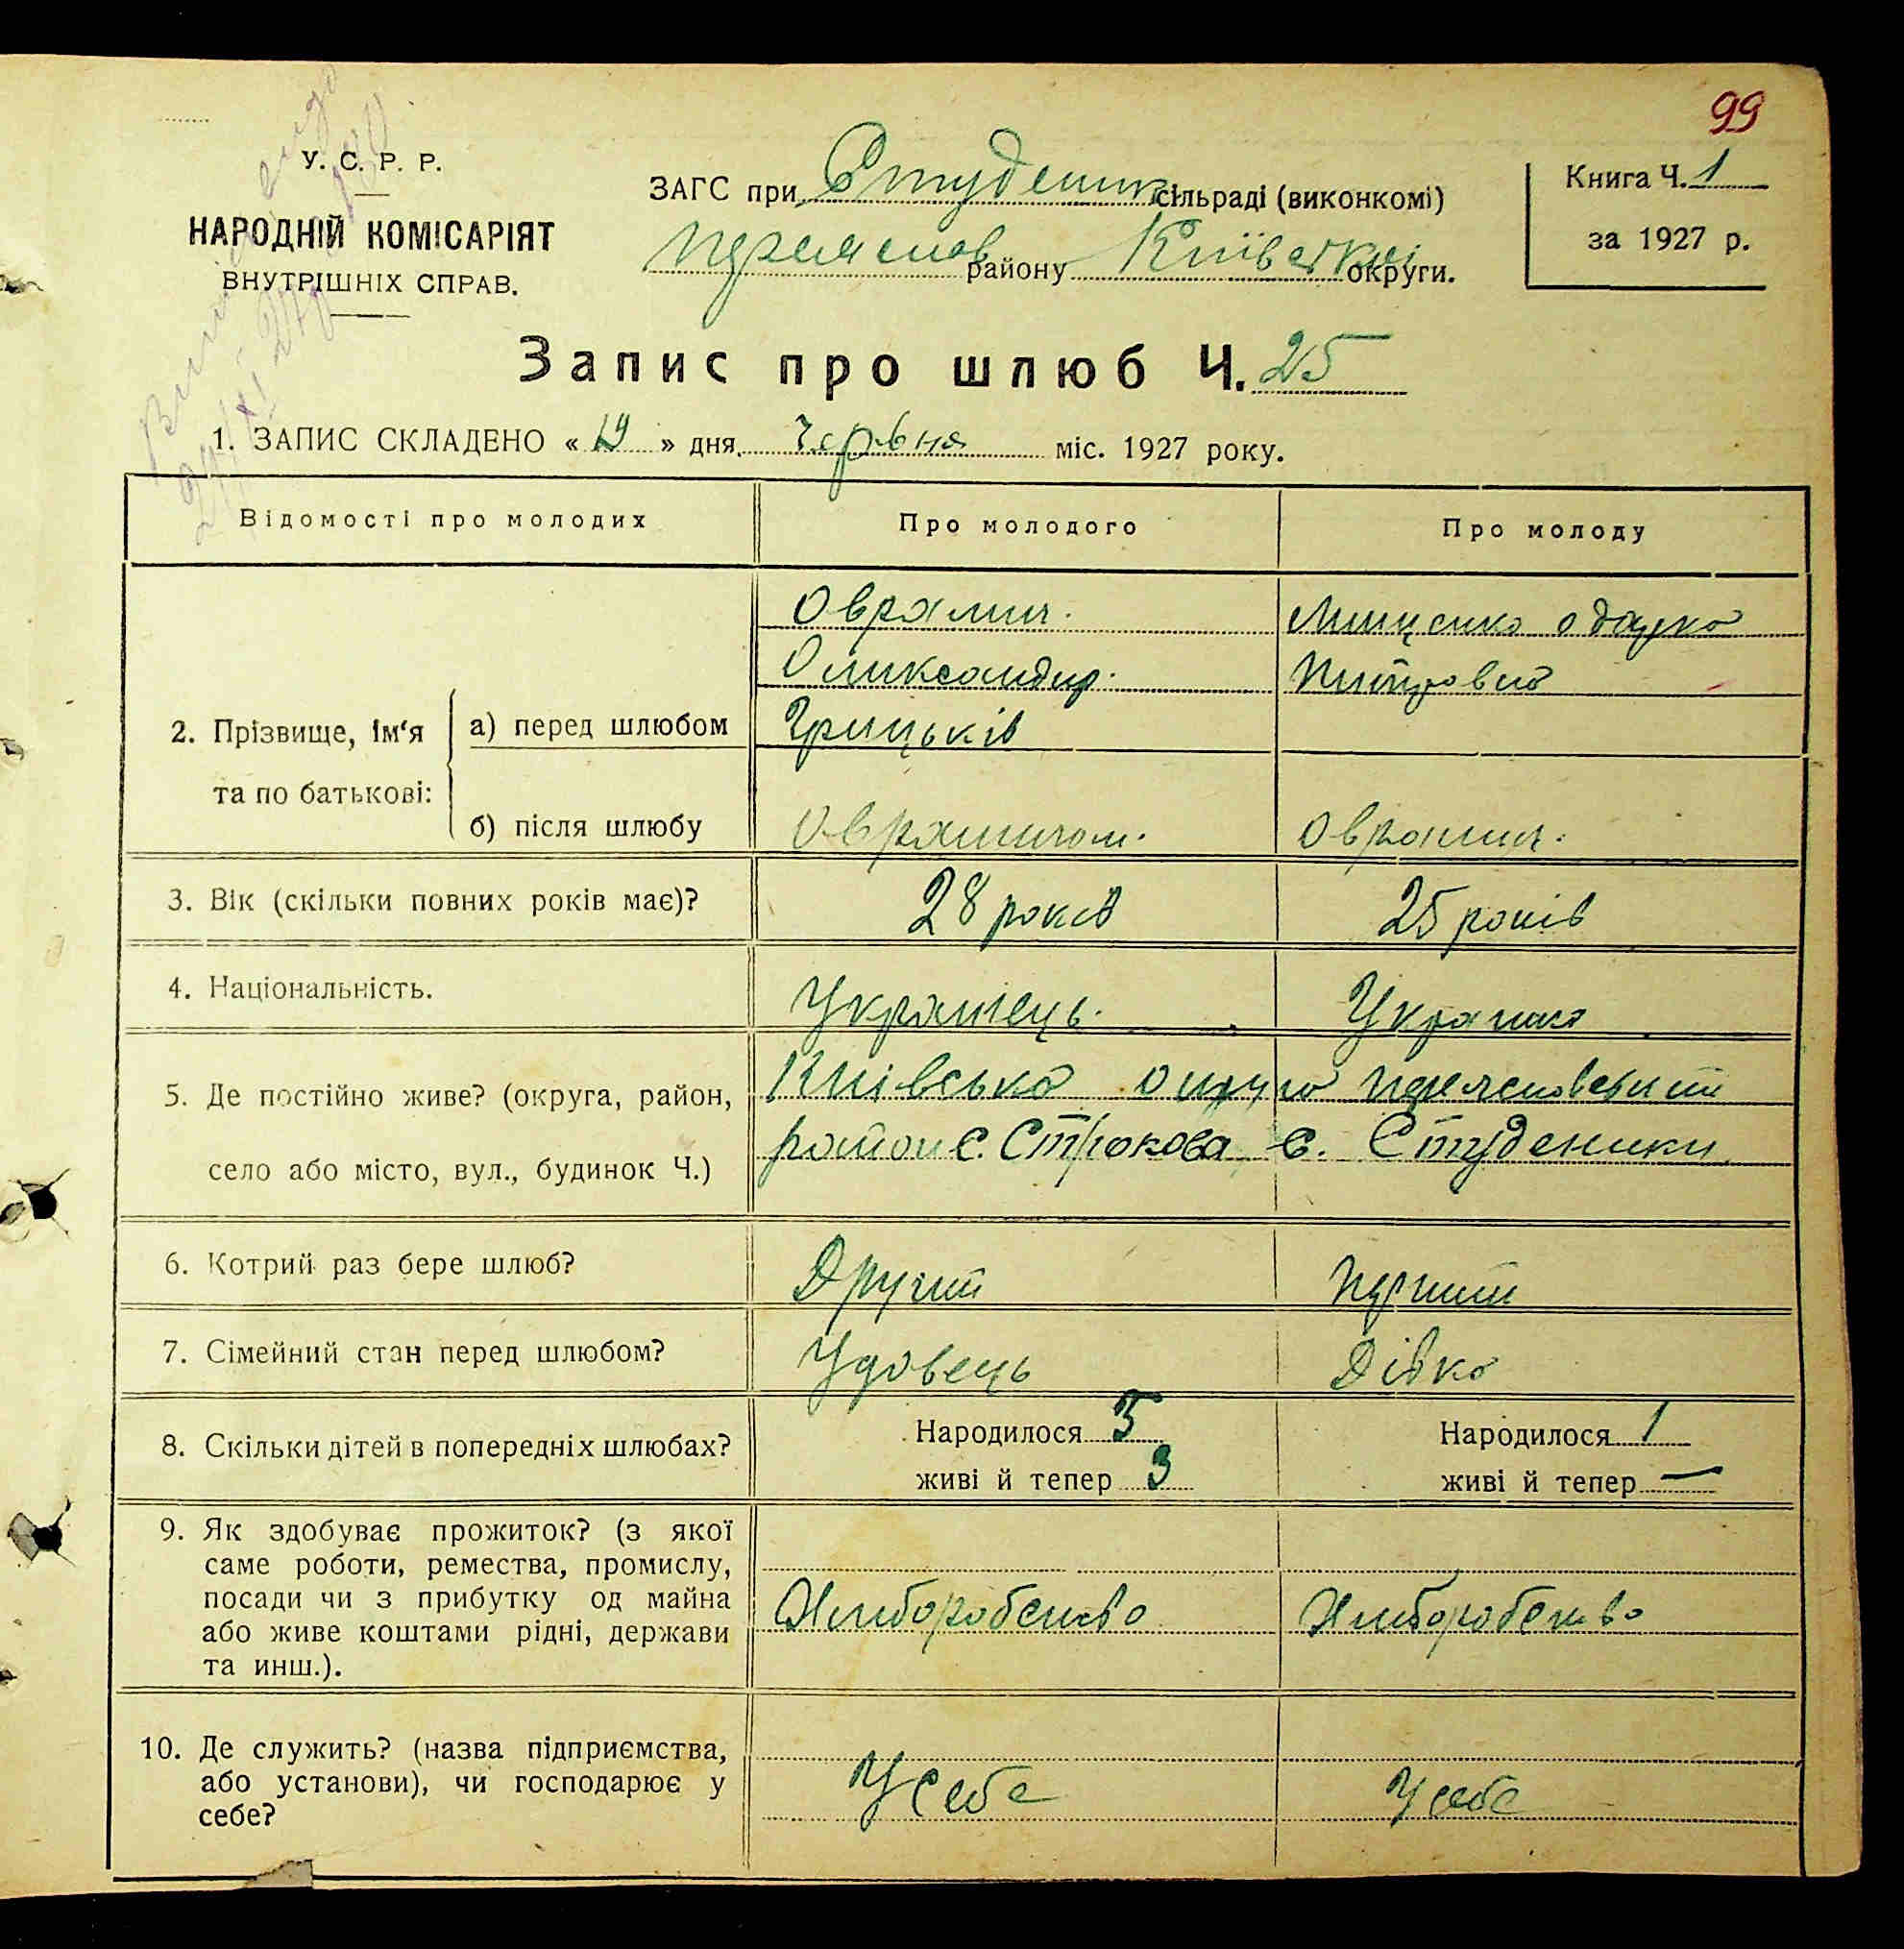 99
У. С. Р. Р.
НАРОДНІЙ КОМІСАРІЯТ
ВНУТРІШНІХ СПРАВ.
ЗАГС при Студеник сільраді (виконкомі)
Переяслов району Київської округи.
Книга Ч. 1
за 1927 р.
Запис про шлюб Ч. 25
1. ЗАПИС СКЛАДЕНО « 19 » дня червня міс. 1927 року.
Відомості про молодих
Про молодого
Про молоду
2. Прізвище, ім‘я та по батькові:
а) перед шлюбом
Оврамич.
Олиександр.
Грицьків
Мищенко Одарка
Питровна
б) після шлюбу
Оврамичом.
Оврамич.
3. Вік (скільки повних років має)?
28 років
25 років
4. Національність.
Украінець.
Украінка
5. Де постійно живе? (округа, район,
село або місто, вул., будинок Ч.)
Київська округа Переясловський
район с. Строкова с. Студеники
6. Котрий раз бере шлюб?
Другий
Перший
7. Сімейний стан перед шлюбом?
Удовець
Дівка
8. Скільки дітей в попередніх шлюбах?
Народилося 3
живі й тепер 3
Народилося 1
живі й тепер —
9. Як здобуває прожиток? (з якої
саме роботи, ремества, промислу,
посади чи з прибутку од майна
або живе коштами рідні, держави
та инш.).
Хлиборобство
Хлиборобство
10. Де служить? (назва підприємства,
або установи), чи господарює у
себе?
У себе
У себе